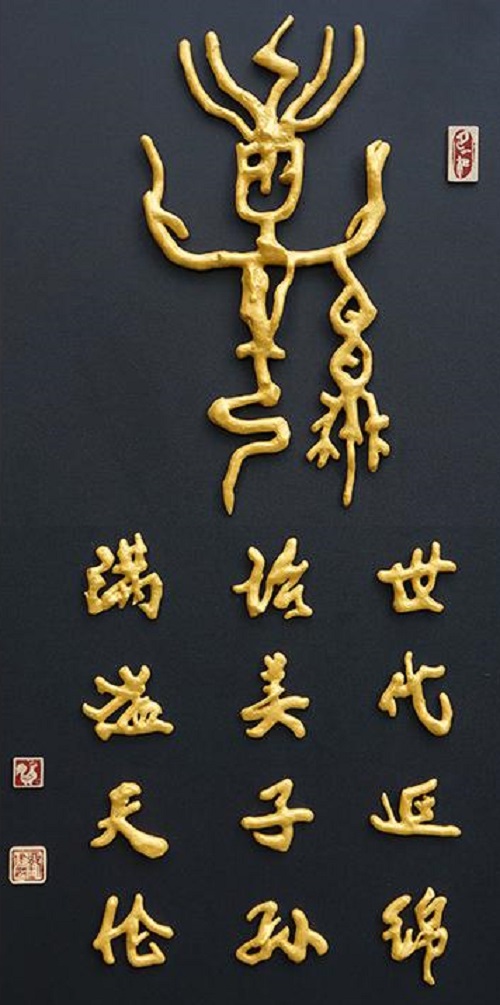 世代延绵
诒美子孙
满溢天伦